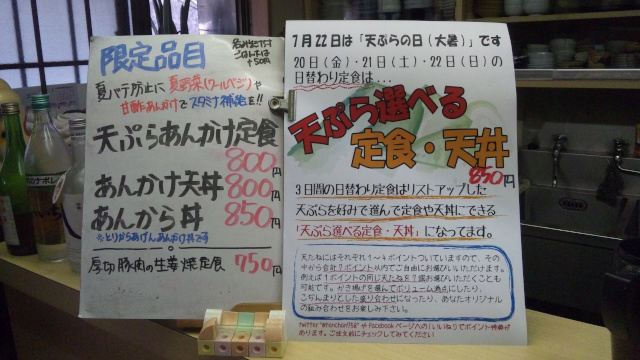 限定品目
夏バテ防止に夏野菜(クールベジ)や
甘酢あんかけでスタミナ補給を!!
天ぷらあんかけ定食
800円
あんかけ天丼 800円
あんから丼 850円
※とりからあげあんかけ丼です
厚切豚肉の生姜焼定食 750円
7月22日は「天ぷらの日(大暑)」です
20日(金)・21日(土)・22日(日)の
日替わり定食は…
天ぷら選べる
定食・天丼
850円
3日間の日替わり定食はリストアップした
天ぷらを好みで選んで定食や天丼にできる
「天ぷら選べる定食・天丼」になってます。
天たねにはそれぞれ1～4ポイントついていますので、その
中から合計7ポイント以内でご自由にお選びいただけます。
例えば1ポイントの同じ天たねを7個お選びいただくことも
可能です。かき揚げを選んでボリューム満点にしたり、
こぢんまりとした盛り合わせになったり、あなたオリジナル
の組み合わせをお楽しみ下さい。
Facebookページへの「いいね!」でポイント特典が
あります。ご注文前にチェックしてみてください